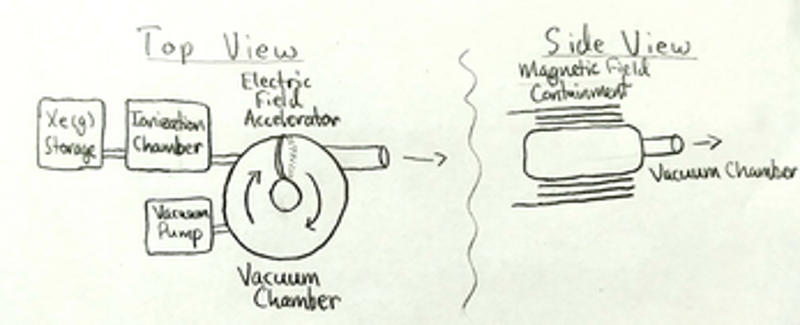 Top View
Electric
Field
Accelerator
Xe(g)
Storage
Ionization
Chamber
Vacuum
Pump
Vacuum
Chamber
Side View
Magnetic Field
Containment
Vacuum Chamber